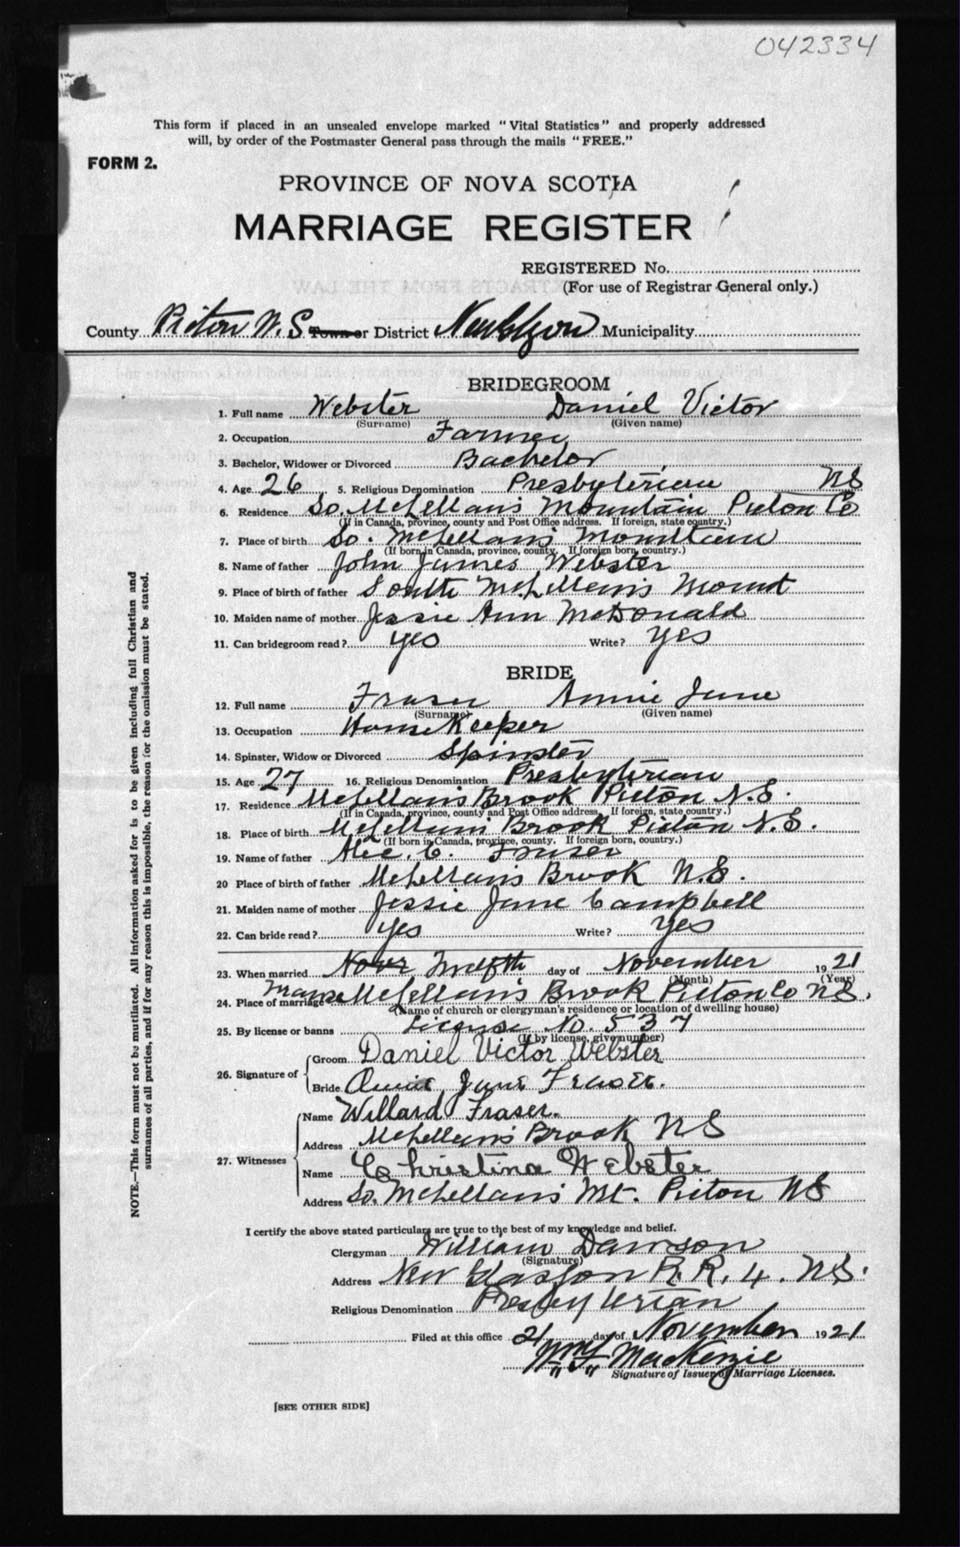 042334
This form if placed in an unsealed envelope marked "Vital Statistics" and properly addressed
will, by order of the Postmaster General pass through the mails "FREE."
FORM 2.
PROVINCE OF NOVA SCOTIA
MARRIAGE REGISTER
REGISTERED No.
(For use of Registrar General only.)
County Pictou N.S Town or District Municipality
BRIDEGROOM
1. Full name Webster Daniel Victor
(Surname) (Given name)
2. Occupation Farmer
3. Bachelor, Widower or Divorced Bachelor
4. Age 26 5. Religious Denomination Presbyterian NS
6. Residence So. McLellan's Mountain Pictou Co
(If in Canada, province, county and Post Office address. If foreign, state country.)
7. Place of birth So. McLellan's Mountain
(If born in Canada, province, county. If foreign born, country.)
8. Name of father John James Webster
9. Place of birth of father South McLellan's Mount
10. Maiden name of mother Jessie Ann McDonald
11. Can bridegroom read? yes Write? yes
BRIDE
12. Full name Fraser Annie Jane
(Surname) (Given name)
13. Occupation House Keeper
14. Spinster, Widow or Divorced Spinster
15. Age 27 16. Religious Denomination Presbyterian
17. Residence McLellan's Brook Pictou N.S.
(If in Canada, province, county and Post Office address. If foreign, state country.)
18. Place of birth McLellan's Brook Pictou N.S.
(If born in Canada, province, county. If foreign born, country.)
19. Name of father Alec. C. Fraser
20 Place of birth of father McLellan's Brook N.S.
21. Maiden name of mother Jessie Jane Campbell
22. Can bride read? Yes Write? Yes
23. When married Twelfth day of November 1921
(Month) (Year)
24. Place of marriage Manse McLellan's Brook Pictou Co N.S.
(Name of church or clergyman's residence or location of dwelling house)
25. By license or banns License No. 537
(If by license, give number)
26. Signature of Groom Daniel Victor Webster
Bride Annie Jane Fraser.
27. Witnesses Name Willard Fraser.
Address McLellan's Brook NS
Name Christina Webster
Address So. McLellan's Mt. Pictou NS
I certify the above stated particulars are true to the best of my knowledge and belief.
Clergyman William Dawson
(Signature)
Address New Glasgow R.R. 4. N.S.
Religious Denomination Presbyterian
Filed at this office 21 day of November 1921
MacKenzie
Signature of Issuer of Marriage Licenses.
[SEE OTHER SIDE]
NOTE.—This form must not be mutilated. All information asked for is to be given including full Christian and
surnames of all parties, and if for any reason this is impossible, the reason for the omission must be stated.